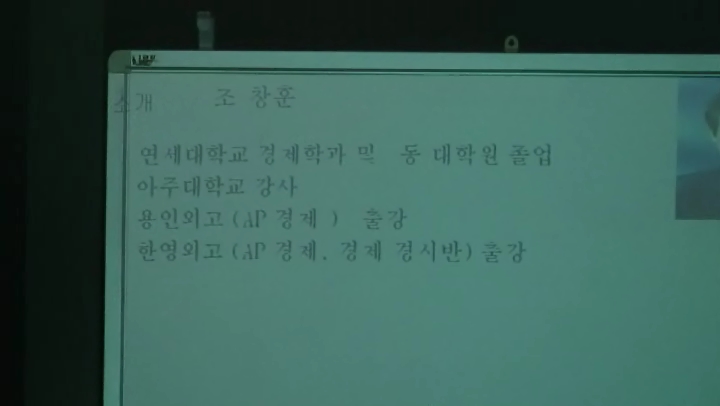 소개 조 창훈
연세대학교 경제학과 및 동 대학원 졸업
아주대학교 강사
용인외고 (AP 경제 ) 출강
한영외고 (AP 경제, 경제 경시반) 출강